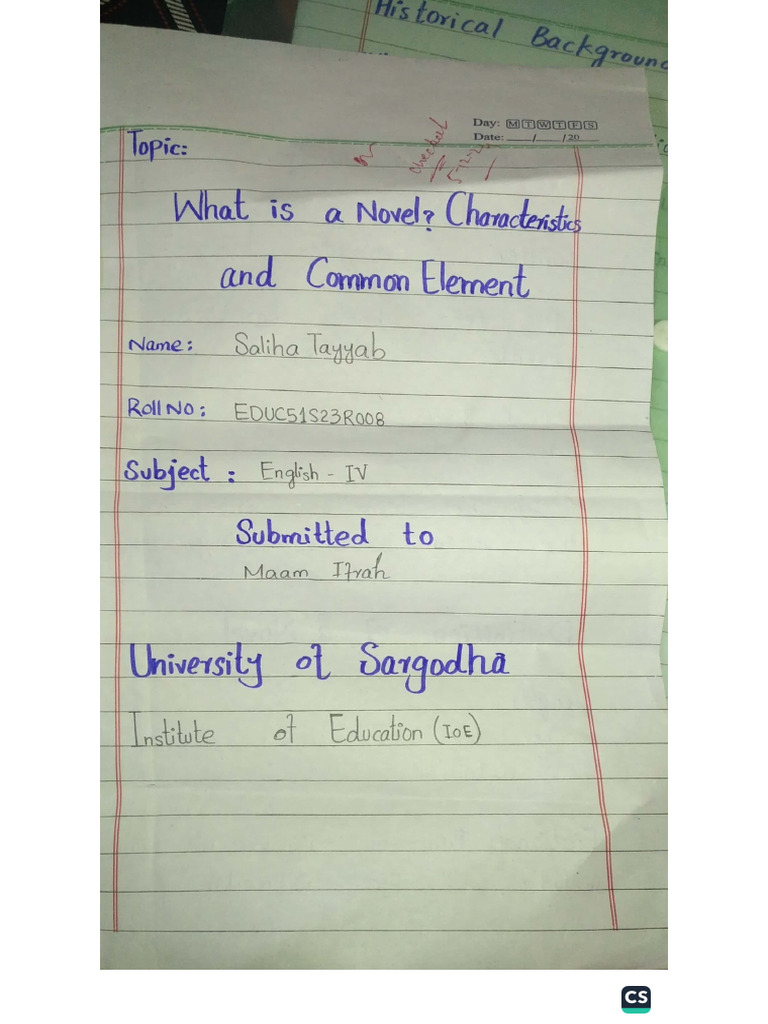 Historical Background
Day: M T W T F S
Date: ___/___/20___
Checked
Topic:
What is a Novel? Characteristics
and Common Element
Name: Saliha Tayyab
Roll No: EDUC51S23R008
Subject: English - IV
Submitted to
Maam Ifrah
University of Sargodha
Institute of Education (IoE)
CS